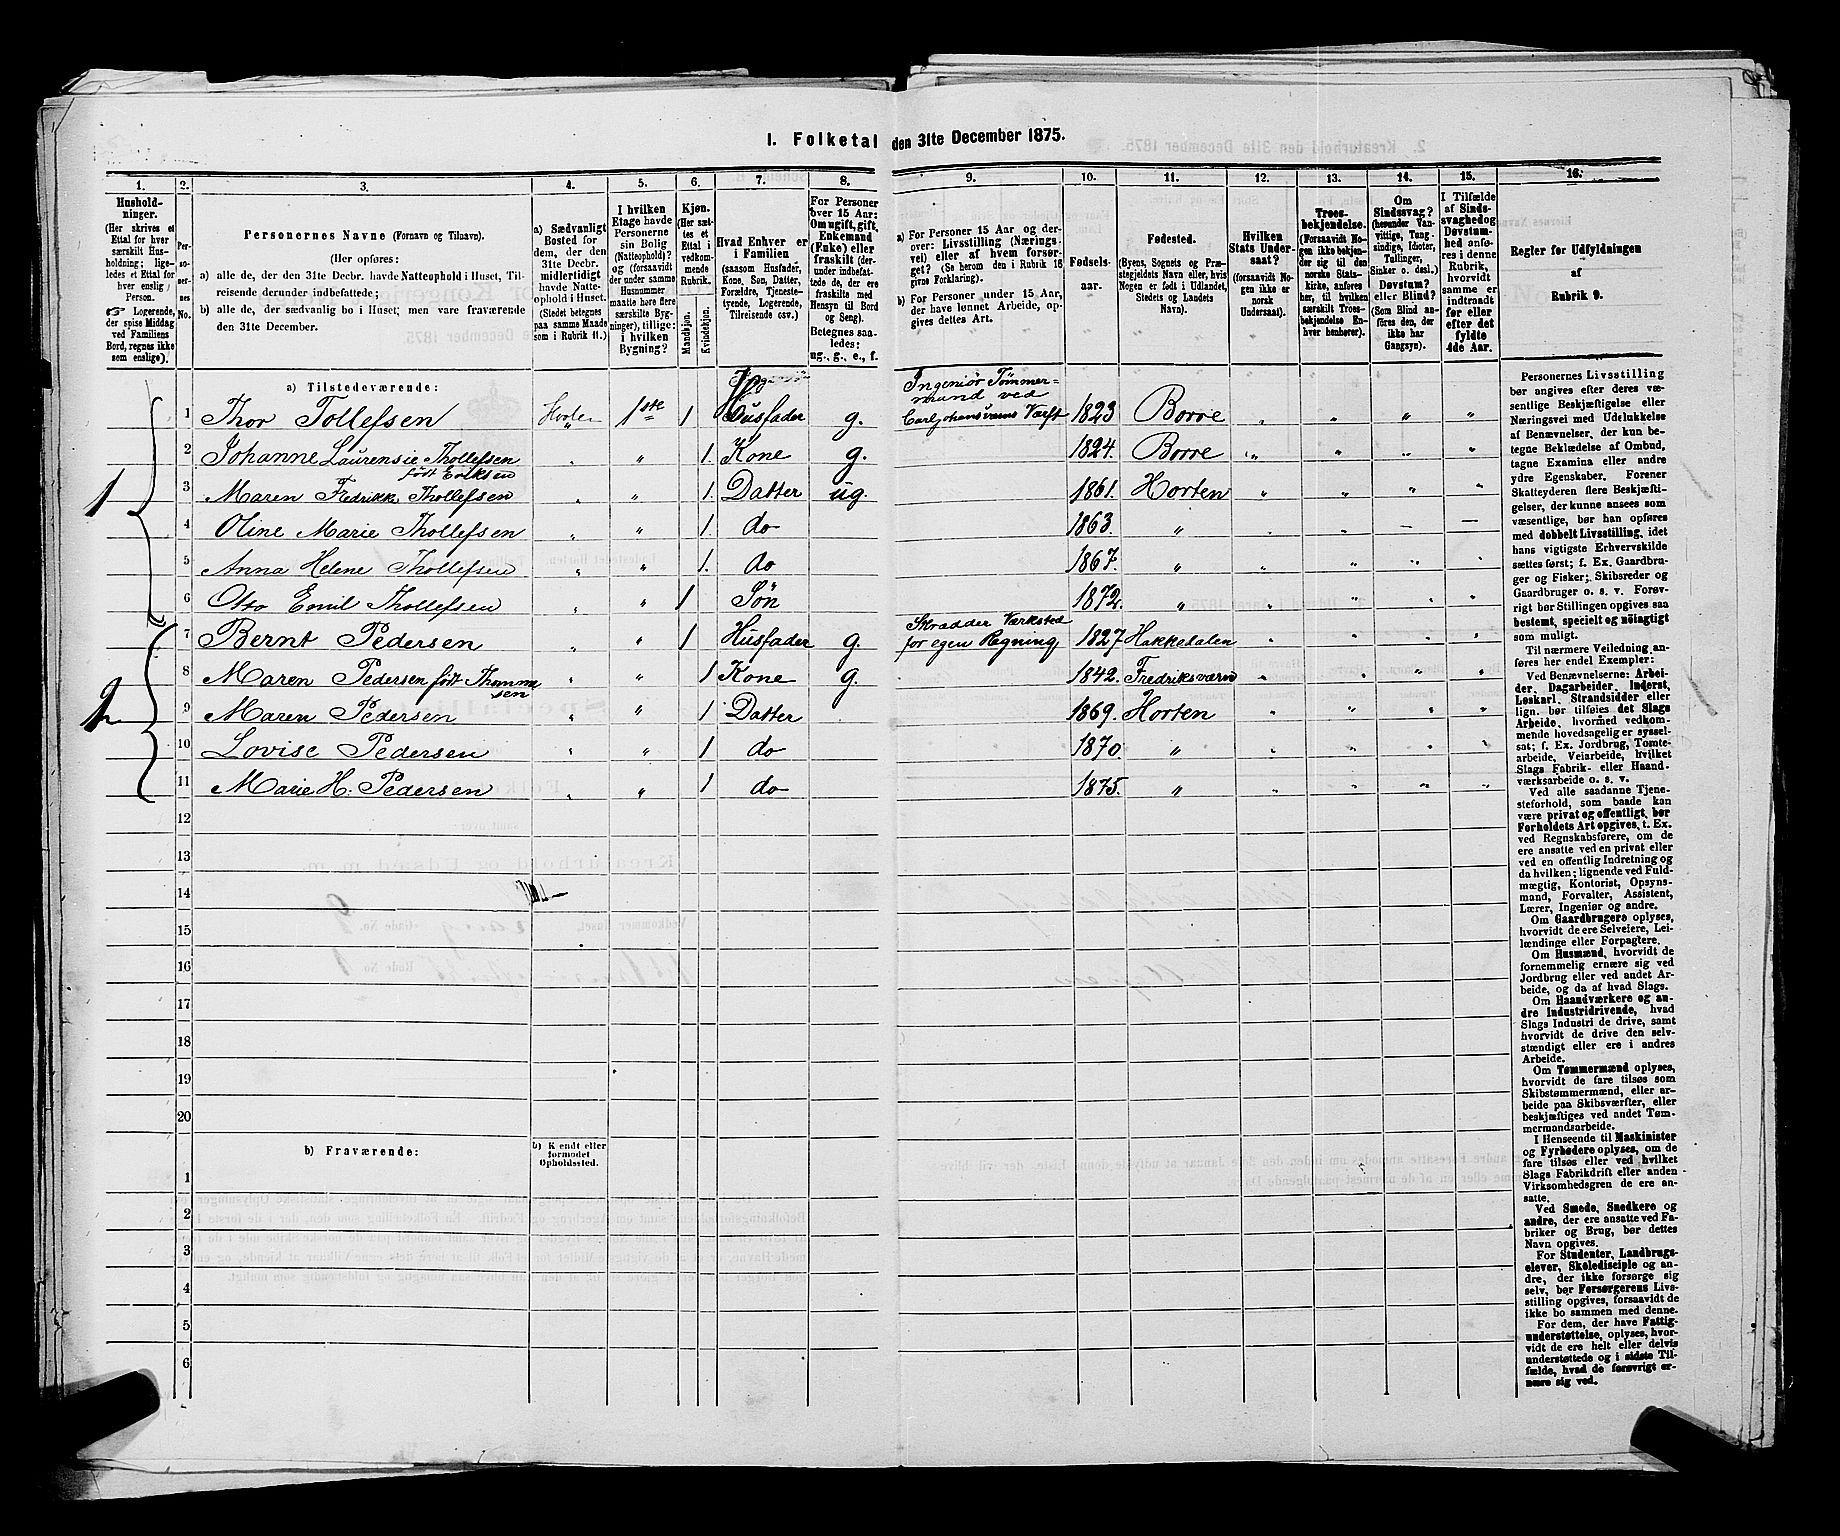 1. Folketal den 31te December 1875.
1. 2. 3. 4. 5. 6. 7. 8. 9. 10. 11. 12. 13. 14. 15. 16.
Hushold-
ninger.
(Her skrives et
Ettal for hver
særskilt Hus-
holdning; lige-
ledes et Ettal for
hver enslig
Person.
Logerende,
der spise Middag
ved Familiens
Bord, regnes ikke
som enslige).
Per-
so-
ner-
nes
No.
Personernes Navne (Fornavn og Tilnavn).
(Her opføres:
a) alle de, der den 31te Decbr. havde Natteophold i Huset, Til-
reisende derunder indbefattede;
b) alle de, der sædvanlig bo i Huset; men vare fraværende
den 31te December.
a) Sædvanligt
Bosted for
dem, der den
31te Decbr.
midlertidigt
havde Natte-
ophold i Huset.
(Stedet betegnes
paa samme Maade
som i Rubrik 11.)
I hvilken
Etage havde
Personerne
sin Bolig
(Natteophold)?
og (forsaavidt
der under samme
Husnummer
maatte høre flere
særskilte Byg-
ninger), tillige:
i hvilken
Bygning?
Kjøn.
(Her sæt-
tes et
Ettal i
vedkom-
mende
Rubrik.
Mandkjøn.
Kvindekjøn.
Hvad Enhver er
i Familien
(saasom Husfader,
Kone, Søn, Datter,
Forældre, Tjeneste-
tyende, Logerende,
Tilreisende osv.)
For Personer
over 15 Aar:
Om ugift, gift,
Enkemand
(Enke) eller
fraskilt (der-
under indbefat-
tede de, der ere
fraskilte med
Hensyn til Bord
og Seng).
Betegnes saa-
ledes:
ug., g., e., f.
a) For Personer 15 Aar og der-
over: Livsstilling (Nærings-
vei) eller af hvem forsør-
get? (Se herom den i Rubrik 16
givne Forklaring).
b) For Personer under 15 Aar,
der have lønnet Arbeide, op-
gives dettes Art.
Fødsels-
aar.
Fødested.
(Byens, Sognets og Præ-
stegjeldets Navn eller, hvis
Nogen er født i Udlandet,
Stedets og Landets
Navn).
Hvilken
Stats Under-
saat?
(forsaavidt No-
gen ikke er
norsk
Undersaat).
Troes-
bekjendelse.
(Forsaavidt No-
gen ikke bekjen-
der sig til den
norske Stats-
kirke, anføres
her, til hvilken
særskilt Troes-
bekjendelse En-
hver henhører).
Om
Sindssvag?
(herunder Van-
vittige, Tung-
sindige, Idioter,
Tullinger,
Sinker o. desl.)
Døvstum?
eller Blind?
(Som Blind an-
føres den, der
ikke har
Gangsyn).
I Tilfælde
af Sinds-
svaghed og
Døvstum-
hed anfø-
res i denne
Rubrik,
hvorvidt
samme er
indtraadt
før eller
efter det
fyldte
4de Aar.
Regler for Udfyldningen
af
Rubrik 9.
a) Tilstedeværende:
1
1 Thor Tollefsen Horten 1ste 1 Husfader g. Ingeniør Tømmer=
mand ved
Carljohansværns Værft 1823 Borre
2 Johanne Laurensie Thollefsen 1. Kone g. 1824. Borre
født
3 Maren Fredrikke Thollefsen 1. Datter ug. 1861. Horten
4 Oline Marie Thollefsen 1. do 1863. "
5 Anna Helene Thollefsen 1. do 1867. "
6 Otto Emil Thollefsen 1 Søn 1872. "
2
7 Bernt Pedersen 1 Husfader g. Skrædder Værksted
for egen Regning 1827 Hakkedalen
8 Maren Pedersen født Thomme
sen 1 Kone g. 1842. Fredriksværn
9 Maren Pedersen 1 Datter 1869. Horten
10 Lovise Pedersen 1 do 1870. "
11 Marie H. Pedersen 1 do 1875. "
12
13
14
15
16
17
18
19
20
b) Fraværende:
b) Kjendt eller
formodet
Opholdssted.
1
2
3
4
5
6
Personernes Livsstilling
bør angives efter deres væ-
sentlige Beskjæftigelse eller
Næringsvei med Udelukkelse
af Benævnelser, der kun be-
tegne Beklædelse af Ombud,
tagne Examina eller andre
ydre Egenskaber. Forener
Skatteyderen flere Beskjæfti-
gelser, der kunne ansees som
væsentlige, bør han opføres
med dobbelt Livsstilling, idet
hans vigtigste Erhvervskilde
sættes først; f. Ex. Gaardbru-
ger og Fisker; Skibsreder og
Gaardbruger o. s. v. Forøv-
rigt bør Stillingen opgives saa
bestemt, specielt og nøiagtigt
som muligt.
Til nærmere Veiledning an-
føres her endel Exempler:
Ved Benævnelserne: Arbei-
der, Dagarbeider, Inderst,
Løskarl, Strandsidder eller
lign. bør tilføies det Slags
Arbeide, hvormed vedkom-
mende hovedsagelig er syssel-
sat; f. Ex. Jordbrug, Tomte-
arbeide, Veiarbeide, hvilket
Slags Fabrik- eller Haand-
værksarbeide o. s. v.
Ved alle saadanne Tjene-
steforhold, som baade kan
være privat og offentligt, bør
Forholdets Art opgives, t. Ex.
ved Regnskabsførere, om de
ere ansatte ved en privat eller
ved en offentlig Indretning og
da hvilken; lignende ved Fuld-
mægtig, Kontorist, Opsyns-
mand, Forvalter, Assistent,
Lærer, Ingeniør og andre.
Om Gaardbrugere oplyses,
hvorvidt de ere Selveiere, Lei-
lændinge eller Forpagtere.
Om Husmænd, hvorvidt de
fornemmelig ernære sig ved
Jordbrug eller ved andet Ar-
beide, og da af hvad Slags.
Om Haandværkere og an-
dre Industridrivende, hvad
Slags Industri de drive, samt
hvorvidt de drive den selv-
stændigt eller ere i andres
Arbeide.
Om Tømmermænd oplyses,
hvorvidt de fare tilsøs som
Skibstømmermænd, eller ar-
beide paa Skibsværfter, eller
beskjæftiges ved andet Tøm-
mermandsarbeide.
I Henseende til Maskinister
og Fyrbødere oplyses, om de
fare tilsøs eller ved hvilket
Slags Fabrikdrift eller anden
Virksomhedsgren de ere an-
satte.
Ved Smede, Snedkere og
andre, der ere ansatte ved Fa-
briker og Brug, bør dettes
Navn opgives.
For Studenter, Landbrugs-
elever, Skoledisciple og an-
dre, der ikke forsørge sig
selv, bør Forsørgerens Livs-
stilling opgives, forsaavidt de
ikke bo sammen med denne.
For dem, der have Fattig-
understøttelse, oplyses, hvor-
vidt de ere helt eller delvis
understøttede og i sidste Til-
fælde, hvad de forøvrigt er-
nære sig ved.